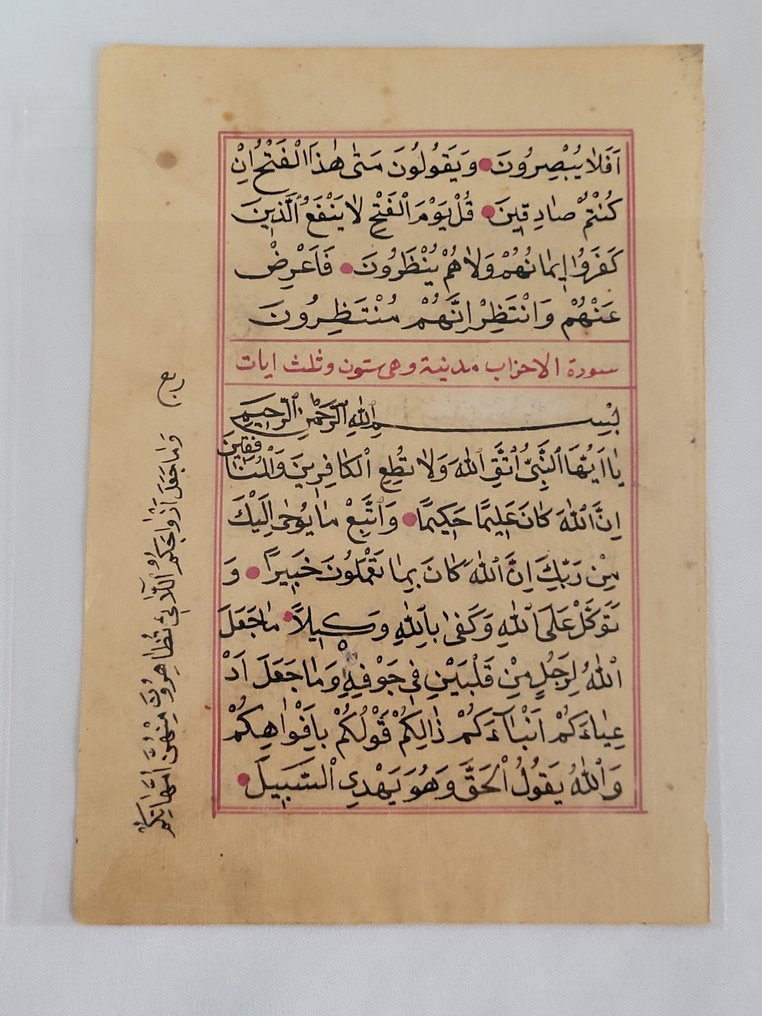 اَفَلَا يُبْصِرُونَ وَيَقُولُونَ مَتٰى هٰذَا الْفَتْحُ اِنْ
كُنْتُمْ صَادِقٖينَ قُلْ يَوْمَ الْفَتْحِ لَا يَنْفَعُ الَّذٖينَ
كَفَرُوا اِيمَانُهُمْ وَلَا هُمْ يُنْظَرُونَ فَاَعْرِضْ
عَنْهُمْ وَانْتَظِرْ اِنَّهُمْ مُنْتَظِرُونَ
سورة الاحزاب مدنية وهى ستون وثلث ايات
بِسْمِ اللّٰهِ الرَّحْمٰنِ الرَّحٖيمِ
يَا اَيُّهَا النَّبِىُّ اتَّقِ اللّٰهَ وَلَا تُطِعِ الْكَافِرٖينَ وَالْمُنَا
فِقٖينَ
اِنَّ اللّٰهَ كَانَ عَلٖيمًا حَكٖيمًا وَاتَّبِعْ مَا يُوحٰى اِلَيْكَ
مِنْ رَبِّكَ اِنَّ اللّٰهَ كَانَ بِمَا تَعْمَلُونَ خَبٖيرًا وَ
تَوَكَّلْ عَلَى اللّٰهِ وَكَفٰى بِاللّٰهِ وَكٖيلًا مَا جَعَلَ
اللّٰهُ لِرَجُلٍ مِنْ قَلْبَيْنِ فٖى جَوْفِهٖ وَمَا جَعَلَ اَدْ
عِيَاءَكُمْ اَبْنَاءَكُمْ ذٰلِكُمْ قَوْلُكُمْ بِاَفْوَاهِكُمْ
وَاللّٰهُ يَقُولُ الْحَقَّ وَهُوَ يَهْدِى السَّبٖيلَ
وَمَا جَعَلَ اَزْوَاجَكُمُ اللَّائٖ تُظَاهِرُونَ مِنْهُنَّ اُمَّهَاتِكُمْ